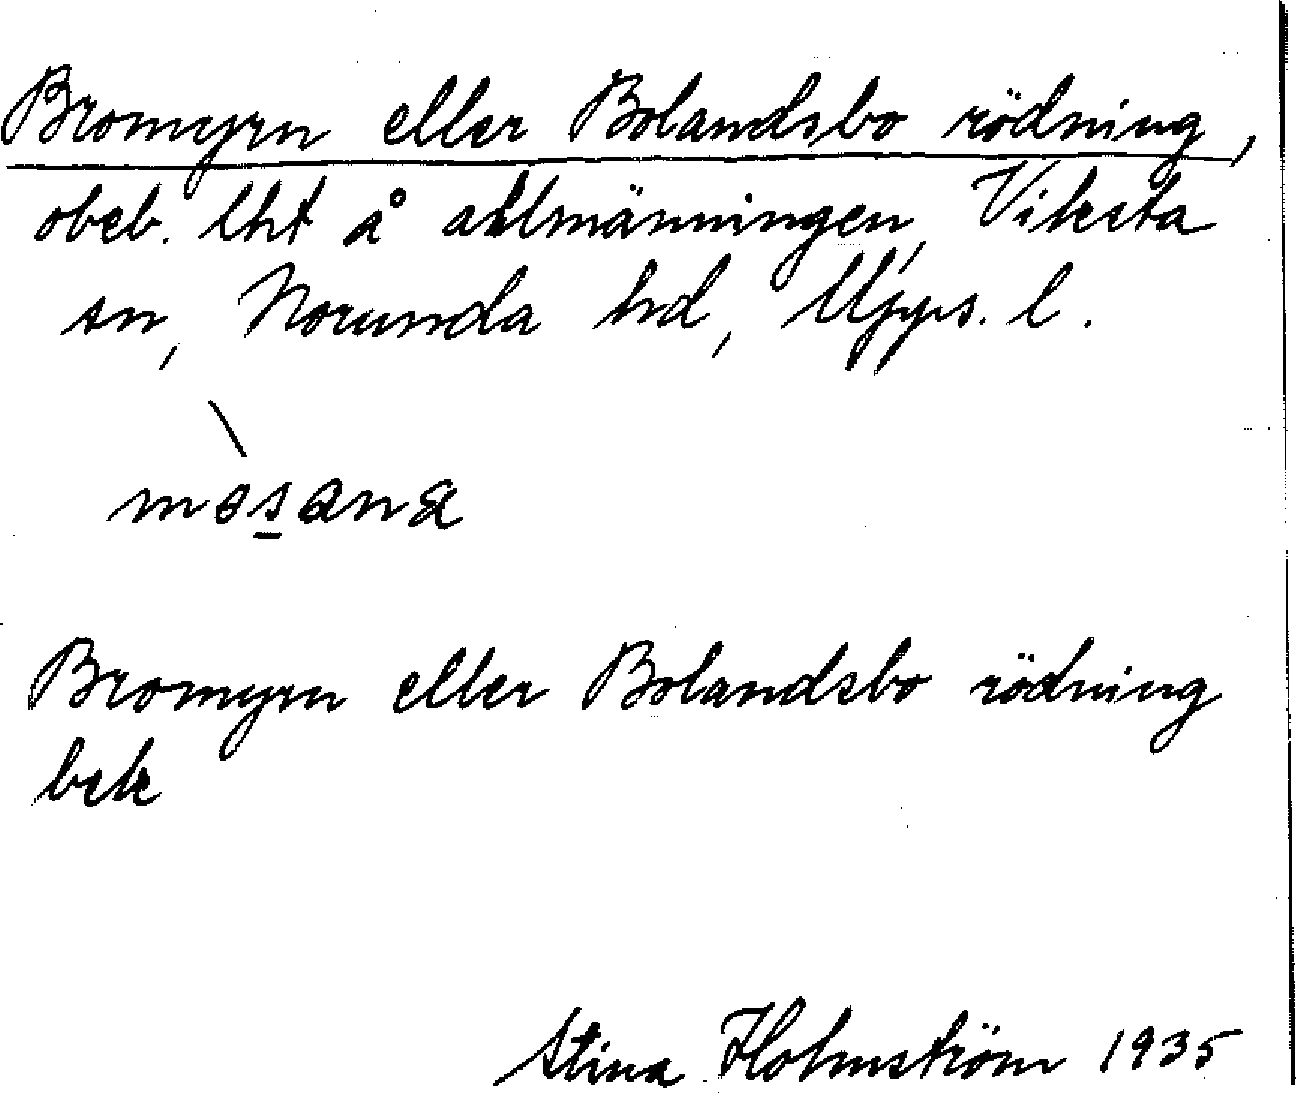 Bromyrn eller Bolandsbo rödning,
obeb. lht å allmänningen, Viksta
sn, Norunda hd, Upps. l.
mosana
Bromyrn eller Bolandsbo rödning
bek
Stina Holmström 1935